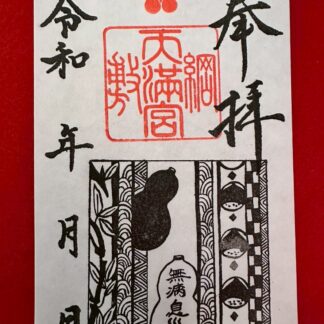 奉拝
綱
天満宮
敷
令和 年 月 日
無病息災